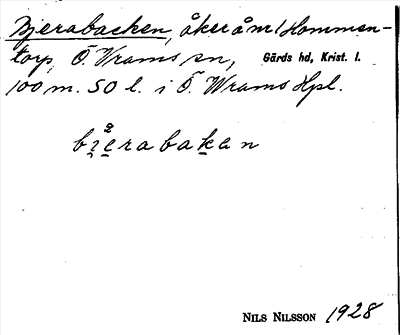 Bjerabacken, åker å nr 1 Hommen-
torp, Ö. Vrams sn, Gärds hd, Krist. l.
100 m. SO l. i Ö. Wrams Hpl.
bjerabakan
NILS NILSSON 1928